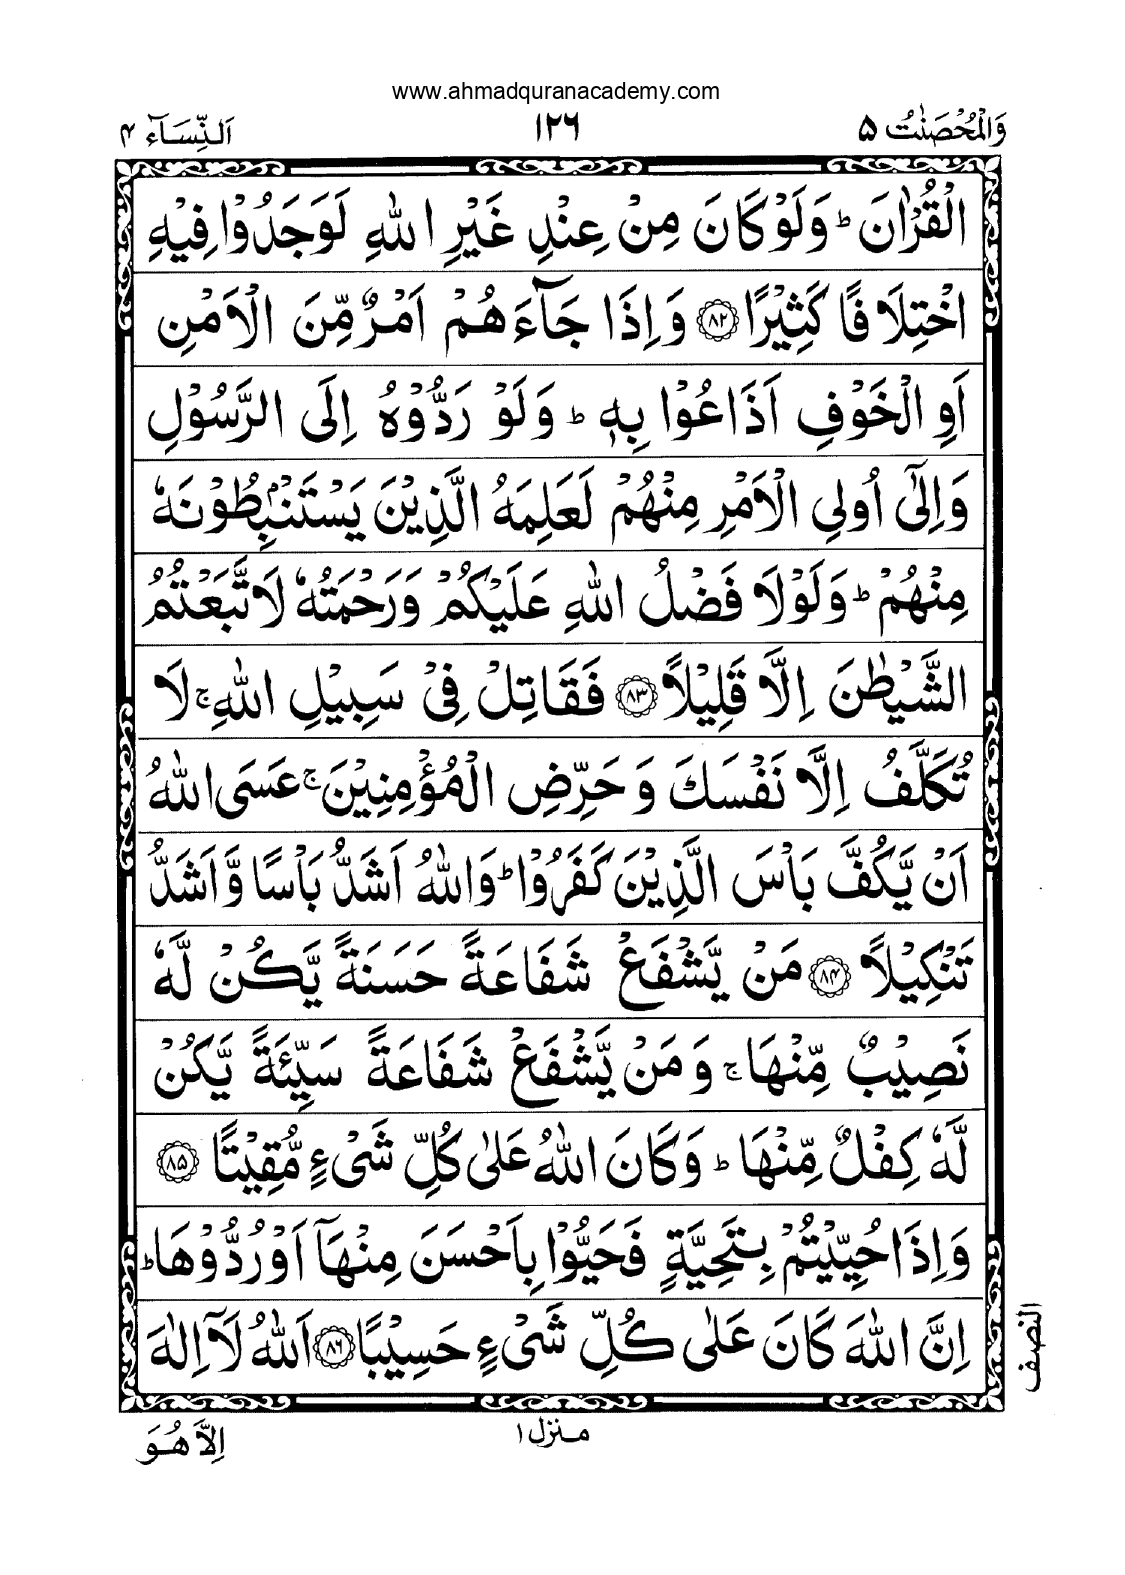 www.ahmadquranacademy.com
وَالْمُحْصَنٰتُ ۵ ۱۲۶ اَلنِّسَآء ۴
الْقُرْاٰنَ ؕ وَلَوْ كَانَ مِنْ عِنْدِ غَيْرِ اللّٰهِ لَوَجَدُوْا فِيْهِ
اخْتِلَافًا كَثِيْرًا ﴿۸۲﴾ وَاِذَا جَآءَهُمْ اَمْرٌ مِّنَ الْاَمْنِ
اَوِ الْخَوْفِ اَذَاعُوْا بِهٖ ؕ وَلَوْ رَدُّوْهُ اِلَى الرَّسُوْلِ
وَاِلٰٓى اُولِي الْاَمْرِ مِنْهُمْ لَعَلِمَهُ الَّذِيْنَ يَسْتَنْۢبِطُوْنَهٗ
مِنْهُمْ ؕ وَلَوْلَا فَضْلُ اللّٰهِ عَلَيْكُمْ وَرَحْمَتُهٗ لَاتَّبَعْتُمُ
الشَّيْطٰنَ اِلَّا قَلِيْلًا ﴿۸۳﴾ فَقَاتِلْ فِيْ سَبِيْلِ اللّٰهِ ۚ لَا
تُكَلَّفُ اِلَّا نَفْسَكَ وَحَرِّضِ الْمُؤْمِنِيْنَ ۚ عَسَى اللّٰهُ
اَنْ يَّكُفَّ بَاْسَ الَّذِيْنَ كَفَرُوْا ؕ وَاللّٰهُ اَشَدُّ بَاْسًا وَّاَشَدُّ
تَنْكِيْلًا ﴿۸۴﴾ مَنْ يَّشْفَعْ شَفَاعَةً حَسَنَةً يَّكُنْ لَّهٗ
نَصِيْبٌ مِّنْهَا ۚ وَمَنْ يَّشْفَعْ شَفَاعَةً سَيِّئَةً يَّكُنْ
لَّهٗ كِفْلٌ مِّنْهَا ؕ وَكَانَ اللّٰهُ عَلٰى كُلِّ شَيْءٍ مُّقِيْتًا ﴿۸۵﴾
وَاِذَا حُيِّيْتُمْ بِتَحِيَّةٍ فَحَيُّوْا بِاَحْسَنَ مِنْهَآ اَوْ رُدُّوْهَا ؕ
اِنَّ اللّٰهَ كَانَ عَلٰى كُلِّ شَيْءٍ حَسِيْبًا ﴿۸۶﴾ اَللّٰهُ لَآ اِلٰهَ
النصف
منزل ۱
اِلَّا هُوَ